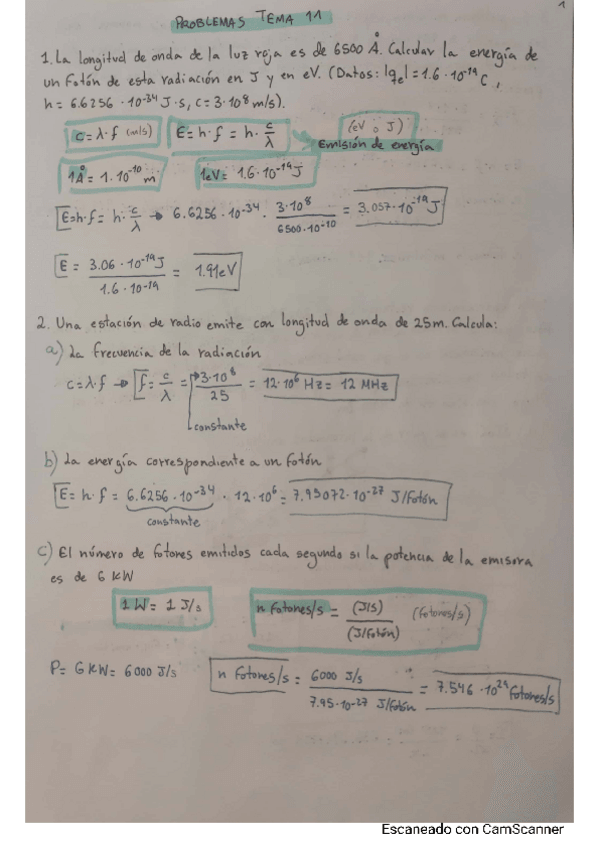 1
PROBLEMAS TEMA 11
1. La longitud de onda de la luz roja es de 6500 Å. Calcular la energía de
un fotón de esta radiación en J y en eV. (Datos: |qe| = 1.6 · 10⁻¹⁹ C,
h = 6.6256 · 10⁻³⁴ J·s, c = 3·10⁸ m/s).
c = λ·f (m/s) E = h·f = h· c/λ (eV o J)
Emisión de energía
1Å = 1·10⁻¹⁰ m 1eV = 1.6·10⁻¹⁹ J
E = h·f = h· c/λ → 6.6256·10⁻³⁴ · 3·10⁸ / 6500·10⁻¹⁰ = 3.057·10⁻¹⁹ J
E = 3.06·10⁻¹⁹ J / 1.6·10⁻¹⁹ = 1.91eV
2. Una estación de radio emite con longitud de onda de 25m. Calcula:
a) La frecuencia de la radiación
c = λ·f → f = c/λ = 3·10⁸ / 25 = 12·10⁶ Hz = 12 MHz
constante
b) La energía correspondiente a un fotón
E = h·f = 6.6256·10⁻³⁴ · 12·10⁶ = 7.95072·10⁻²⁷ J/fotón
constante
c) El número de fotones emitidos cada segundo si la potencia de la emisora
es de 6 KW
1 W = 1 J/s n fotones/s = (J/s) / (J/fotón) (fotones/s)
P = 6 KW = 6000 J/s n fotones/s = 6000 J/s / 7.95·10⁻²⁷ J/fotón = 7.546·10²⁹ fotones/s
Escaneado con CamScanner